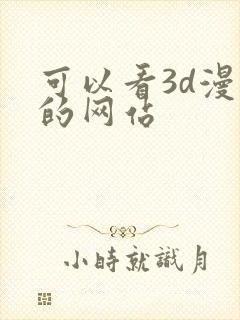 可以看3d漫
的网站
小时就识月